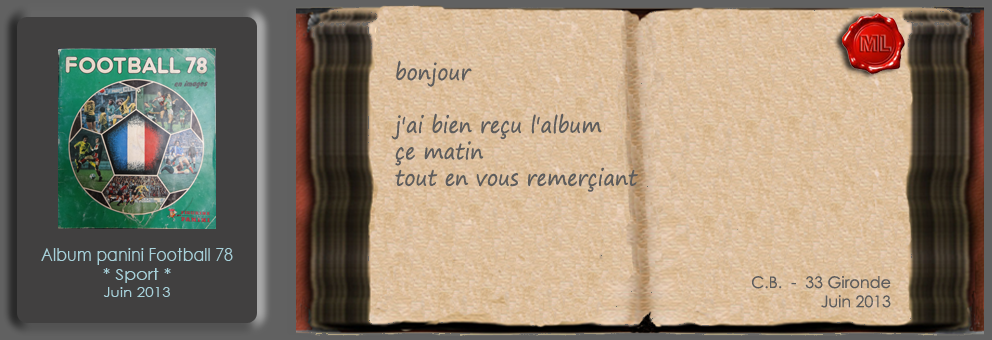 FOOTBALL 78
en images
Album panini Football 78
* Sport *
Juin 2013
ML
bonjour
j'ai bien reçu l'album
çe matin
tout en vous remerçiant
C.B. - 33 Gironde
Juin 2013